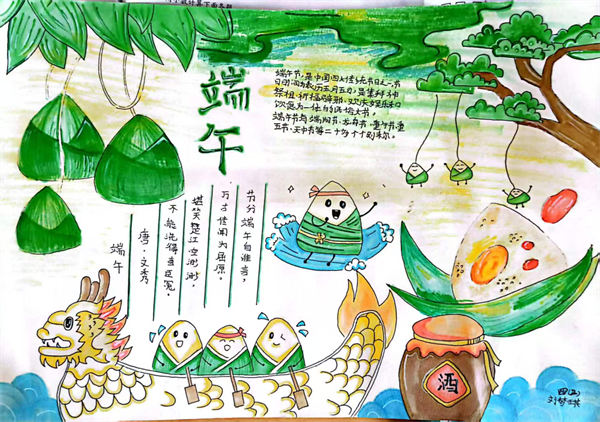 端午
端午节，是中国四大传统节日之一，节
日时间为农历五月五日，是集拜神
祭祖、祈福辟邪、欢庆娱乐和
饮食为一体的民俗大节，
端午节与端阳节、龙舟节、重午节、重
五节、天中节等二十多个个别称。
节分端午自谁言，
万古传闻为屈原。
堪笑楚江空渺渺，
不能洗得直臣冤。
唐·文秀
端午
酒
四(五)